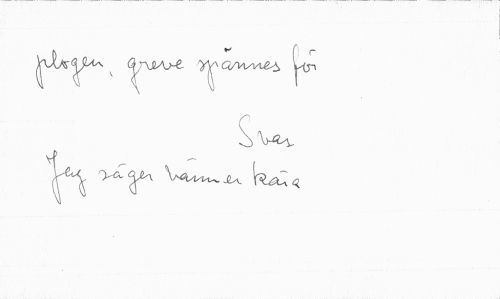 plogen, greve spännes för
Svar
Jag säger vänner kära